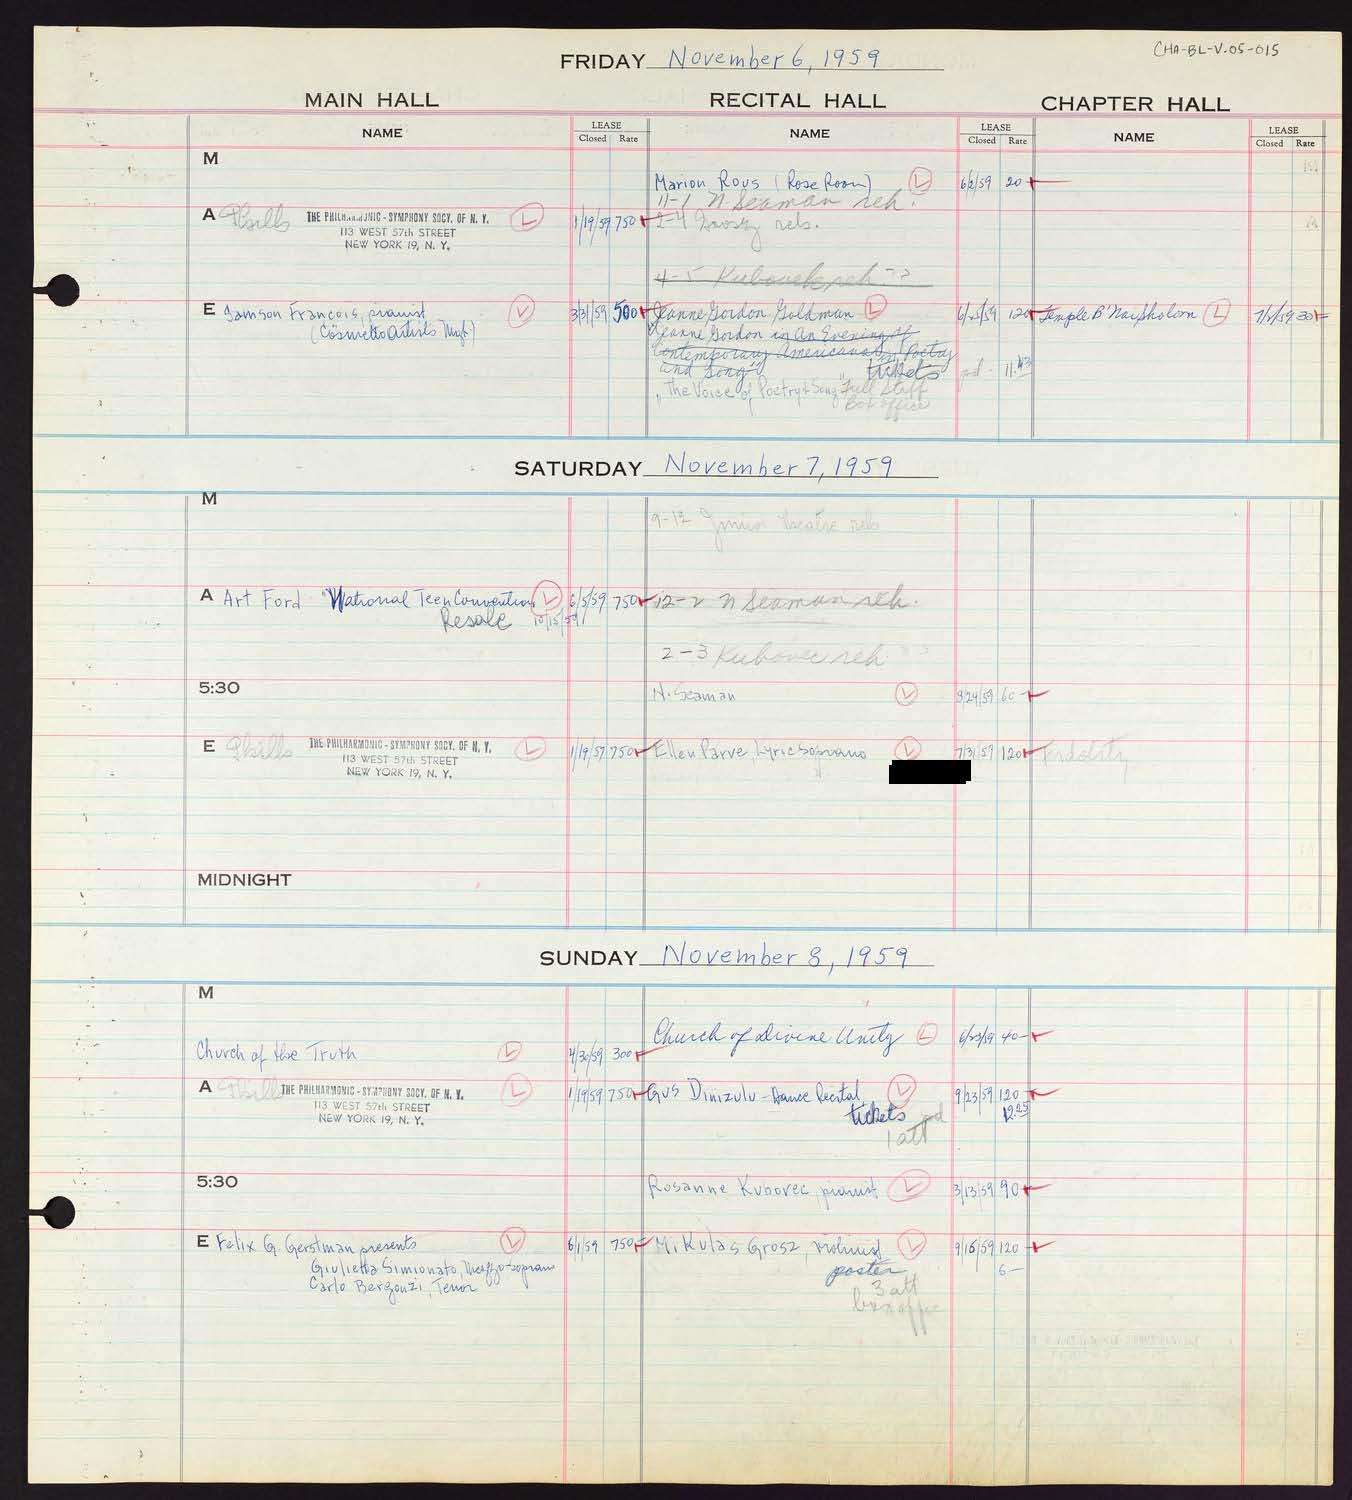 CHA-BL-V.05-015
FRIDAY November 6, 1959
MAIN HALL RECITAL HALL CHAPTER HALL
NAME LEASE Closed Rate NAME LEASE Closed Rate NAME LEASE Closed Rate
M
Marion Rous (Rose Room) L 6/2/59 20
11-1 N Seaman reh.
A Phills THE PHILHARMONIC - SYMPHONY SOCY. OF N. Y. L 1/19/59 750 2-4 reh.
113 WEST 57th STREET
NEW YORK 19, N. Y.
4-5 Kubovec reh
E Samson Francois, pianist L 3/31/59 500 Jeanne Gordon Goldman L 6/25/59 120 Temple B'Nai Sholom L 30
(Cosmetto Artists Mgt)
Jeanne Gordon in An Evening of
Contemporary Americana in Poetry
and Song"
tickets pd. 11.43
"The Voice of Poetry & Song" Full Staff
Box office
SATURDAY November 7, 1959
M
9-12 Junior theatre reh
A Art Ford "National Teen Convention L 6/5/59 750 12-2 N Seaman reh.
Resale 10/15/59
2-3 Kubovec reh
5:30 N. Seaman L 60
E Phills THE PHILHARMONIC - SYMPHONY SOCY. OF N. Y. L 1/19/59 750 Ellen Parve, Lyric Soprano L 7/31/59 120
113 WEST 57th STREET
NEW YORK 19, N. Y.
MIDNIGHT
SUNDAY November 8, 1959
M
Church of Divine Unity L 6/23/59 40
Church of the Truth L 4/30/59 300
A Phills THE PHILHARMONIC - SYMPHONY SOCY. OF N. Y. L 1/19/59 750 Gus Dinizulu - Dance Recital L 9/23/59 120
113 WEST 57th STREET
NEW YORK 19, N. Y.
tickets pd 12.25
1 att
5:30 Rosanne Kubovec, pianist L 3/13/59 90
E Felix G. Gerstman presents L 6/1/59 750 Mikulas Grosz, violinist L 9/15/59 120
Giulietta Simionato, Mezzo-soprano
Carlo Bergonzi, Tenor
poster 6-
3 att
box office